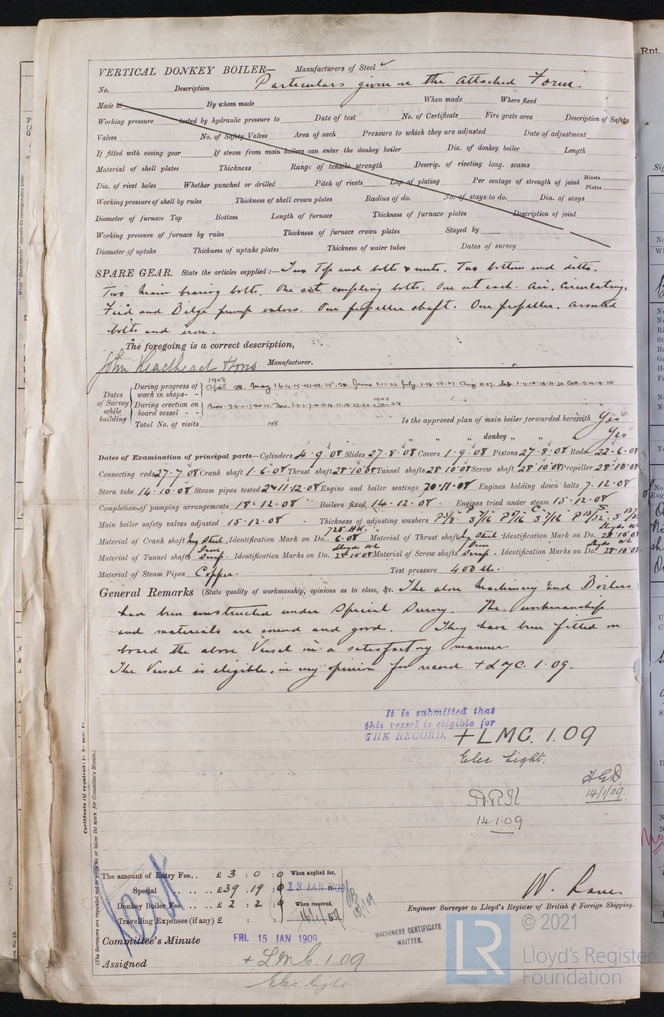 VERTICAL DONKEY BOILER— Manufacturers of Steel
No. Description Particulars given on the attached Form.
Made at By whom made When made Where fixed
Working pressure tested by hydraulic pressure to Date of test No. of Certificate Fire grate area Description of Safety
Valves No. of Safety Valves Area of each Pressure to which they are adjusted Date of adjustment
If fitted with easing gear If steam from main boilers can enter the donkey boiler Dia. of donkey boiler Length
Material of shell plates Thickness Range of tensile strength Descrip. of riveting long. seams
Dia. of rivet holes Whether punched or drilled Pitch of rivets Lap of plating Per centage of strength of joint Rivets Plates
Working pressure of shell by rules Thickness of shell crown plates Radius of do. No. of stays to do. Dia. of stays
Diameter of furnace Top Bottom Length of furnace Thickness of furnace plates Description of joint
Working pressure of furnace by rules Thickness of furnace crown plates Stayed by
Diameter of uptake Thickness of uptake plates Thickness of water tubes Dates of survey
SPARE GEAR. State the articles supplied:— Two Top end bolts & nuts. Two bottom end ditto.
Two main bearing bolts. One set coupling bolts. One set each. Air, Circulating,
Feed and Bilge pump valves. One propeller shaft. One propeller. Assorted
bolts and iron.
The foregoing is a correct description,
John Readhead & Sons Manufacturer.
Dates of Survey while building
During progress of work in shops - - 1908
During erection on board vessel - - -
Total No. of visits 48 Is the approved plan of main boiler forwarded herewith Yes
" " " donkey " " " Yes
Dates of Examination of principal parts—Cylinders 4.9.08 Slides 27.8.08 Covers 1.9.08 Pistons 27.8.08 Rods 22.6.08
Connecting rods 27.7.08 Crank shaft 1.6.08 Thrust shaft 28.10.08 Tunnel shafts 28.10.08 Screw shaft 28.10.08 Propeller 28.10.08
Stern tube 14.10.08 Steam pipes tested 2 & 11.12.08 Engine and boiler seatings 20.11.08 Engines holding down bolts 7.12.08
Completion of pumping arrangements 18.12.08 Boilers fixed 14.12.08 Engines tried under steam 15.12.08
Main boiler safety valves adjusted 15.12.08 Thickness of adjusting washers
Material of Crank shaft Ing Steel Identification Mark on Do. 6.08 Material of Thrust shaft Ing Steel Identification Mark on Do. 28.10.08
Material of Tunnel shafts Iron Scrap Identification Marks on Do. 28.10.08 Material of Screw shafts Iron Scrap Identification Marks on Do. 28.10.08
Material of Steam Pipes Copper. Test pressure 400 lbs.
General Remarks (State quality of workmanship, opinions as to class, &c. The above Machinery and Boilers
has been constructed under Special Survey. The workmanship
and materials are sound and good. They have been fitted on
board the above Vessel in a satisfactory manner.
The Vessel is eligible, in my opinion for record + LMC 1.09.
It is submitted that
this vessel is eligible for
THE RECORD. + LMC. 1.09
Elec Light.
14/1/09.
14.1.09
The amount of Entry Fee . . £ 3 : 0 : 0 When applied for,
Special . . . . . £ 39 : 19 : 0 13 JAN 1909
Donkey Boiler Fee . . . £ 2 : 2 : 0 When received,
Travelling Expenses (if any) £
Engineer Surveyor to Lloyd's Register of British & Foreign Shipping.
Committee's Minute FRI. 15 JAN 1909
MACHINERY CERTIFICATE
WRITTEN.
Assigned + LMC. 1.09
Elec light
LR © 2021
Lloyd's Register
Foundation